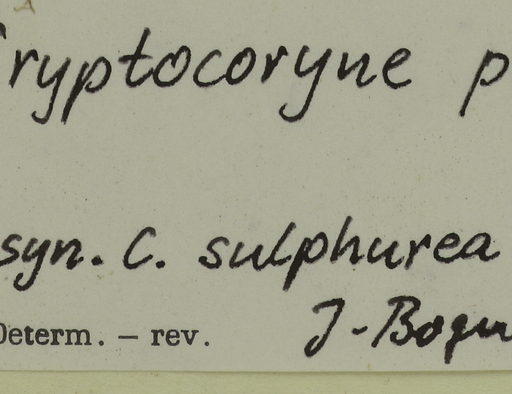 ryptocoryne p
syn. C. sulphurea
Determ. — rev. J. Bogn